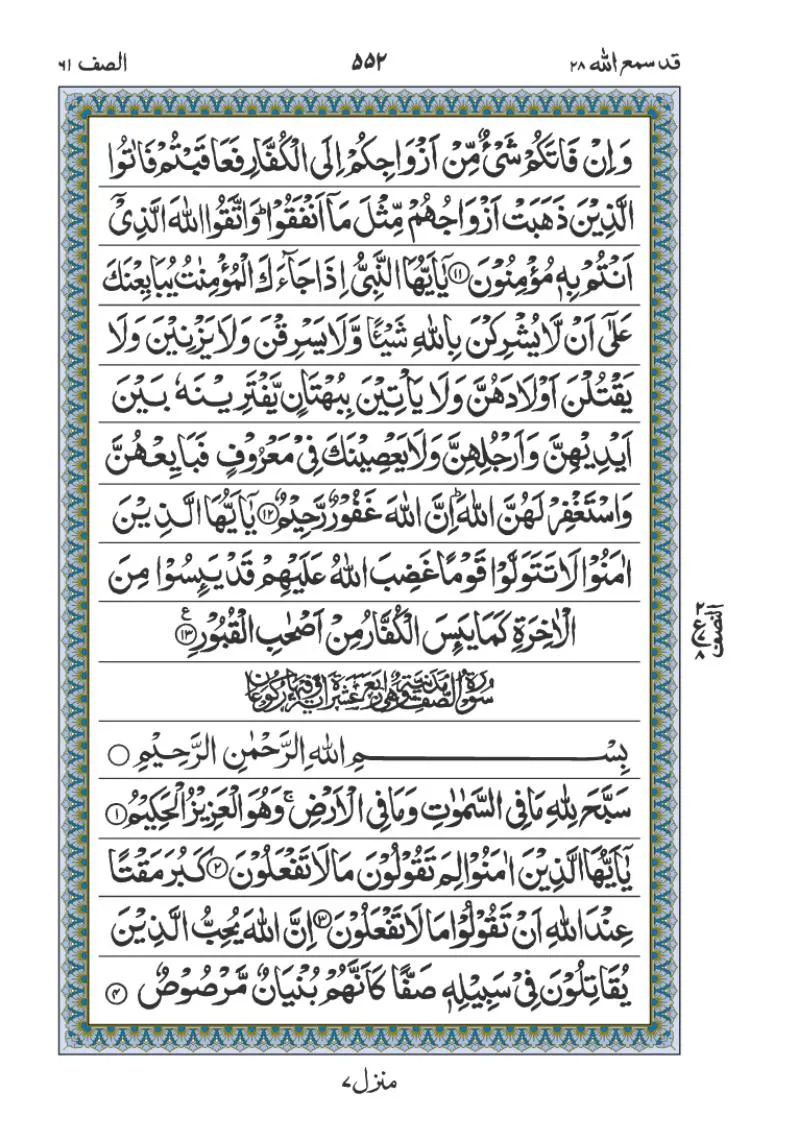 قد سمع الله ۲۸ ۵۵۲ الصف ۶۱
وَاِنْ فَاتَكُمْ شَیْءٌ مِّنْ اَزْوَاجِكُمْ اِلَی الْكُفَّارِ فَعَاقَبْتُمْ فَاٰتُوا
الَّذِیْنَ ذَهَبَتْ اَزْوَاجُهُمْ مِّثْلَ مَاۤ اَنْفَقُوْا ؕ وَاتَّقُوا اللهَ الَّذِیْۤ
اَنْتُمْ بِهٖ مُؤْمِنُوْنَ ۝۱۱ یٰۤاَیُّهَا النَّبِیُّ اِذَا جَآءَكَ الْمُؤْمِنٰتُ یُبَایِعْنَكَ
عَلٰۤی اَنْ لَّا یُشْرِكْنَ بِاللهِ شَیْـًٔا وَّلَا یَسْرِقْنَ وَلَا یَزْنِیْنَ وَلَا
یَقْتُلْنَ اَوْلَادَهُنَّ وَلَا یَاْتِیْنَ بِبُهْتَانٍ یَّفْتَرِیْنَهٗ بَیْنَ
اَیْدِیْهِنَّ وَاَرْجُلِهِنَّ وَلَا یَعْصِیْنَكَ فِیْ مَعْرُوْفٍ فَبَایِعْهُنَّ
وَاسْتَغْفِرْ لَهُنَّ اللهَ ؕ اِنَّ اللهَ غَفُوْرٌ رَّحِیْمٌ ۝۱۲ یٰۤاَیُّهَا الَّذِیْنَ
اٰمَنُوْا لَا تَتَوَلَّوْا قَوْمًا غَضِبَ اللهُ عَلَیْهِمْ قَدْ یَىِٕسُوْا مِنَ
الْاٰخِرَةِ كَمَا یَىِٕسَ الْكُفَّارُ مِنْ اَصْحٰبِ الْقُبُوْرِ ۝۱۳ ع
سُوْرَةُ الصَّفِّ مَدَنِیَّةٌ وَّهِیَ اَرْبَعَ عَشْرَةَ اٰیَةً وَّفِیْهَا رُكُوْعَانِ
بِسْمِ اللهِ الرَّحْمٰنِ الرَّحِیْمِ ۝
سَبَّحَ لِلّٰهِ مَا فِی السَّمٰوٰتِ وَمَا فِی الْاَرْضِ ۚ وَهُوَ الْعَزِیْزُ الْحَكِیْمُ ۝۱
یٰۤاَیُّهَا الَّذِیْنَ اٰمَنُوْا لِمَ تَقُوْلُوْنَ مَا لَا تَفْعَلُوْنَ ۝۲ كَبُرَ مَقْتًا
عِنْدَ اللهِ اَنْ تَقُوْلُوْا مَا لَا تَفْعَلُوْنَ ۝۳ اِنَّ اللهَ یُحِبُّ الَّذِیْنَ
یُقَاتِلُوْنَ فِیْ سَبِیْلِهٖ صَفًّا كَاَنَّهُمْ بُنْیَانٌ مَّرْصُوْصٌ ۝۴
النصف
منزل ۷